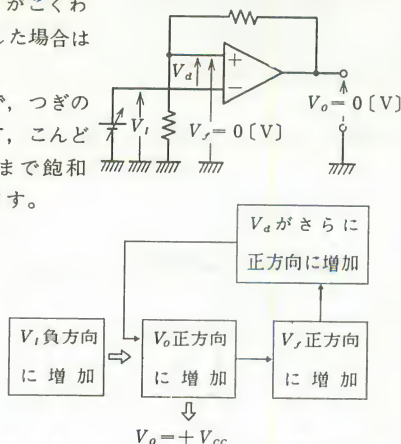 がごくわ
した場合は
で，つぎの
す，こんど
まで飽和
す。
+
−
V_d
V_I
V_f = 0〔V〕
V_o = 0〔V〕
V_dがさらに
正方向に増加
V_I負方向
に増加
V_o正方向
に増加
V_f正方向
に増加
V_o = + V_cc